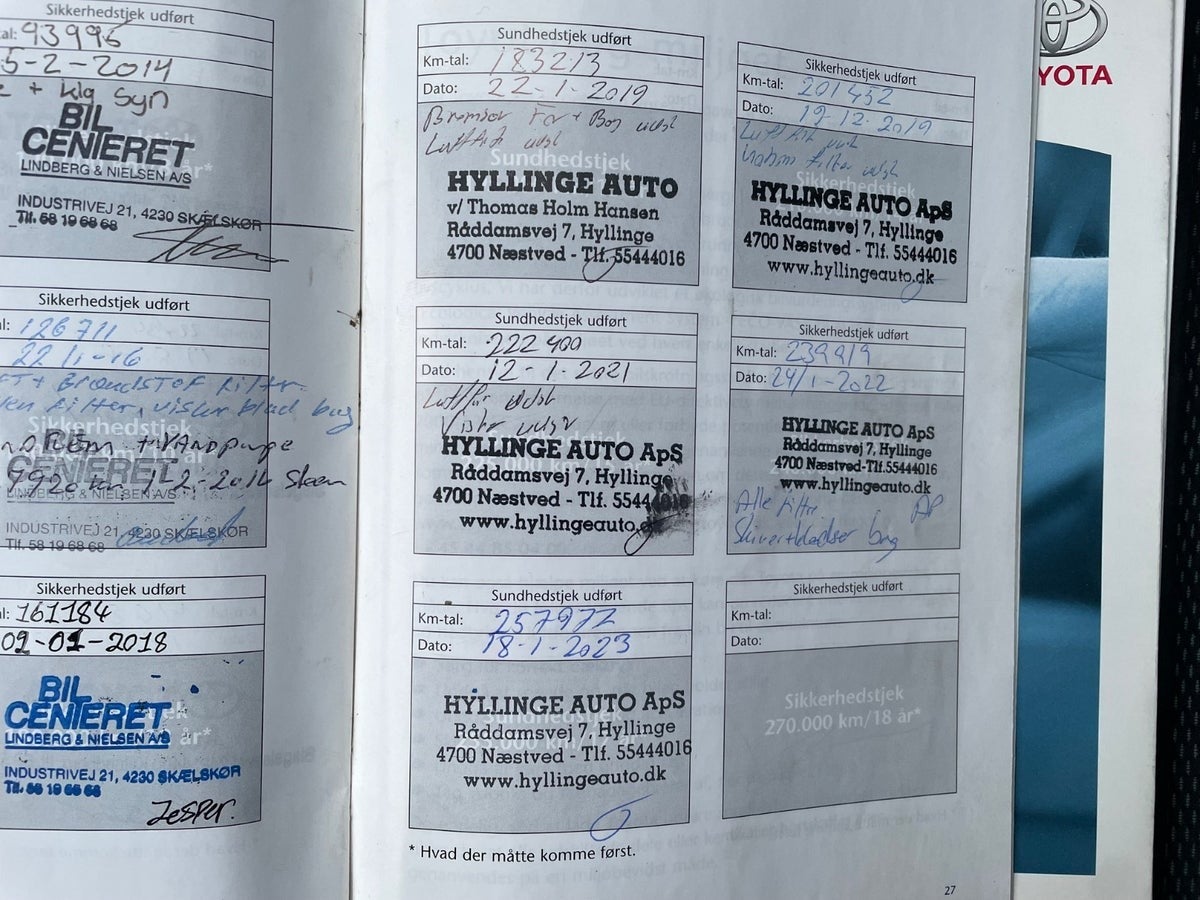 Sikkerhedstjek udført
al: 93996
5-2-2014
+ klg syn
BIL
CENTERET
LINDBERG & NIELSEN A/S
INDUSTRIVEJ 21, 4230 SKÆLSKØR
Tlf. 58 19 68 68
Sikkerhedstjek udført
al: 126711
22/1-16
FT + BrændstoF filter.
filter, visker blad bag
+ VANDpumpe
BIL
CENTERET
LINDBERG & NIELSEN A/S
INDUSTRIVEJ 21, 4230 SKÆLSKØR
Tlf. 58 19 68 68
Sikkerhedstjek udført
al: 161184
09-01-2018
BIL
CENTERET
år*
LINDBERG & NIELSEN A/S
INDUSTRIVEJ 21, 4230 SKÆLSKØR
Tlf. 58 19 68 68
Jesper.
Sundhedstjek udført
Km-tal: 183213
Dato: 22-1-2019
Bremser For + Bag udsk
Luftfilt udsk
Sundhedstjek
HYLLINGE AUTO
v/ Thomas Holm Hansen
Råddamsvej 7, Hyllinge
4700 Næstved - Tlf. 55444016
Sikkerhedstjek udført
Km-tal: 201452
Dato: 19-12-2019
Luftfilt udsk
filter udsk
Sikkerhedstjek
HYLLINGE AUTO ApS
Råddamsvej 7, Hyllinge
4700 Næstved - Tlf. 55444016
www.hyllingeauto.dk
Sundhedstjek udført
Km-tal: 222400
Dato: 12-1-2021
Luftfilt udsk
Visker udsk
HYLLINGE AUTO ApS
Råddamsvej 7, Hyllinge
4700 Næstved - Tlf. 55444016
www.hyllingeauto.dk
Sikkerhedstjek udført
Km-tal: 239919
Dato: 24/1-2022
HYLLINGE AUTO ApS
Råddamsvej 7, Hyllinge
4700 Næstved-Tlf.55444016
www.hyllingeauto.dk
Alle filter
bag
Sundhedstjek udført
Km-tal: 257972
Dato: 18-1-2023
HYLLINGE AUTO ApS
Sundhedstjek
Råddamsvej 7, Hyllinge
4700 Næstved - Tlf. 55444016
www.hyllingeauto.dk
Sikkerhedstjek udført
Km-tal:
Dato:
Sikkerhedstjek
270.000 km/18 år*
* Hvad der måtte komme først.
27
YOTA